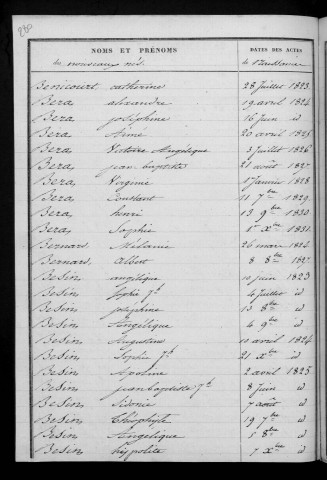 260
NOMS ET PRÉNOMS DATES DES ACTES
des nouveaux nés. de Naissance
Benicourt catherine 28 Juillet 1823
Bera alexandre 19 avril 1824
Bera joséphine 16 juin id
Bera Aimé 20 avril 1825
Bera Victoire Angélique 3 juillet 1826
Bera jean baptiste 21 août 1827
Bera Virginie 17 janvier 1828
Bera Toussaint 11 7bre 1829
Bera henri 13 9bre 1830
Bera Sophie 1er Xbre 1831
Bernard Mélanie 26 mars 1824
Bernard Albert 8 8bre 1827
Besin angélique 10 juin 1823
Besin Sophie 4 Juillet id
Besin joséphine 13 8bre id
Besin Angélique 4 9bre id
Besin Augustin 11 avril 1824
Besin Sophie 21 Xbre id
Besin Apoline 2 avril 1825
Besin jean baptiste 8 juin id
Besin Sidonie 7 août id
Besin Théophile 19 7bre id
Besin Angélique 5 8bre id
Besin hyppolite 7 Xbre id